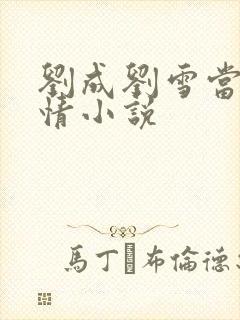 劉成劉雪當
情小說
馬丁布倫德